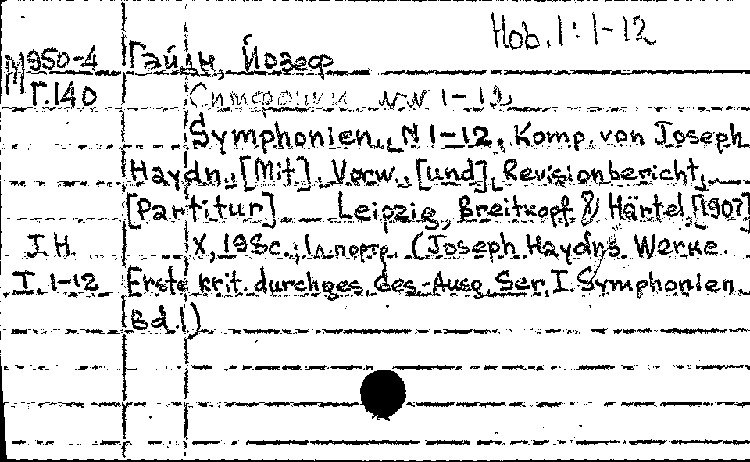 Hob. I: 1-12
М950-4 Гайдн, Йозеф
Г.140 Симфонии NN 1-12
Symphonien, N 1-12, Komp. von Joseph
Haydn. [Mit] Vorw. [und] Revisionbericht.
[Partitur] Leipzig, Breitkopf & Härtel, [1907]
J.H. X, 198c.; 1л.портр. (Joseph Haydns Werke.
I. 1-12 Erste krit. durchges. des Ausg. Ser. I. Symphonien
Bd. 1)